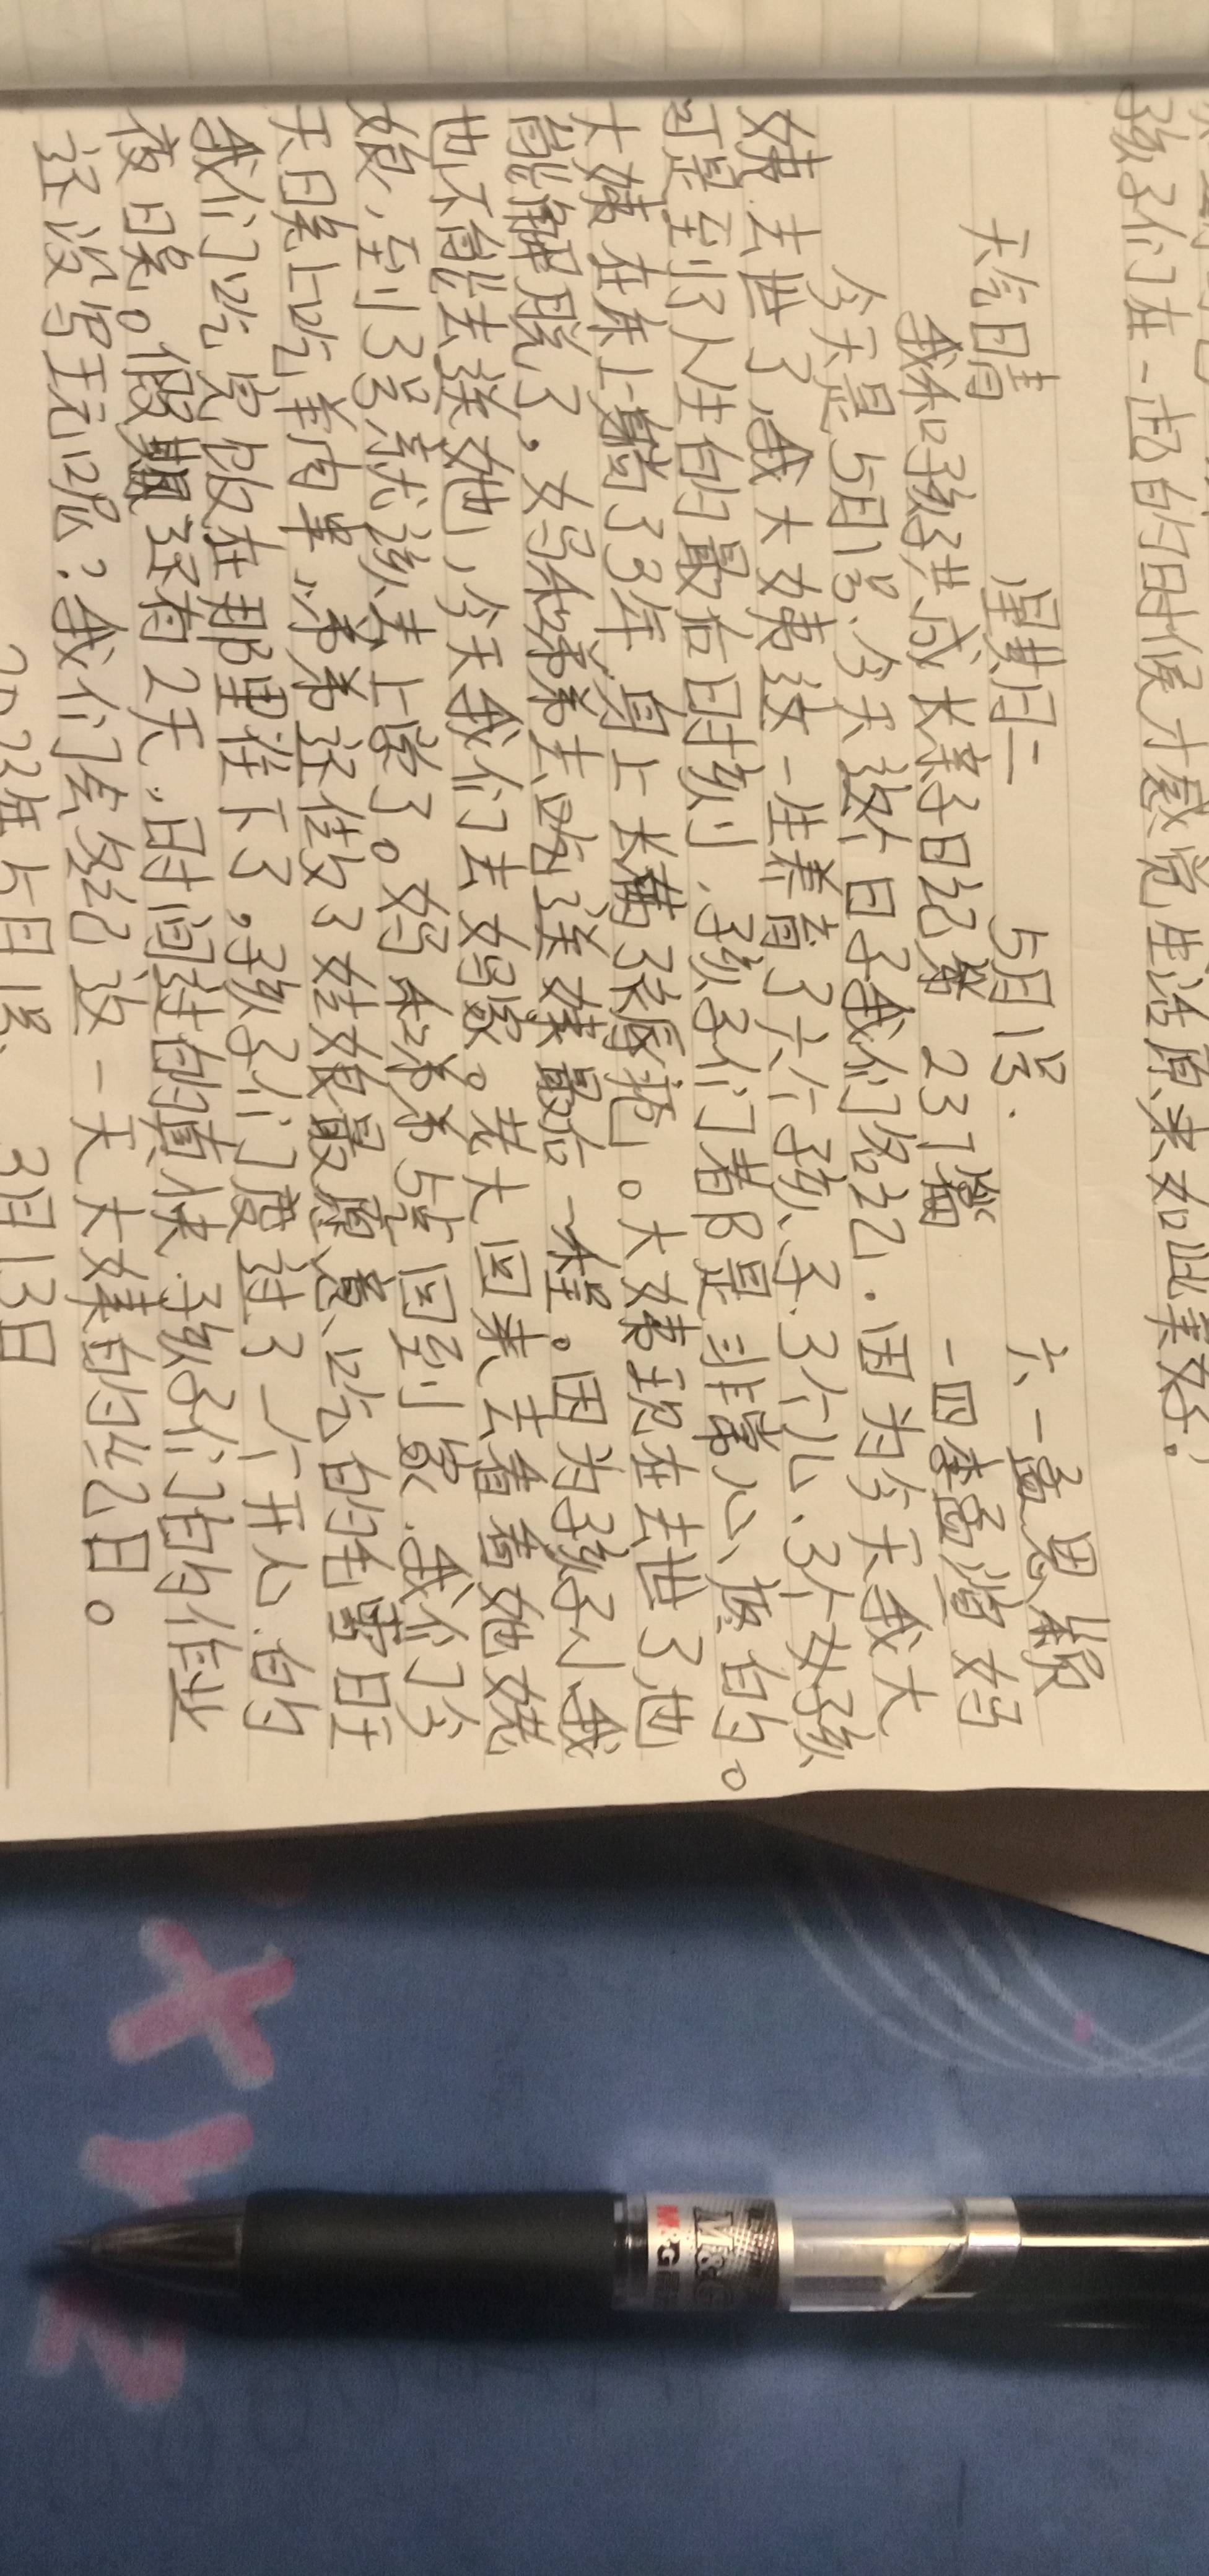 孩子们在一起的时候才感觉生活原来如此美好。
天气晴 星期二 5月1号. 六、一 孟思颖
我和孩子共成长亲子日记第231篇 一四李孟滢妈
今天是5月1号.今天这个日子我们铭记.因为今天我大
姨.去世了,我大姨这一生养育了六个孩子.3个儿.3个女孩
可是到了人生的最后时刻.孩子们都是非常心疼的。
大姨在床上躺了3年.身上长满了褥疮。大姨现在去世了也
能解脱了,妈和弟弟去哈送姨最后一程。因为孩子小我
也不能去送她,今天我们去妈家。老大回来去看看她姥
娘,到了3号就该去上学了。妈和弟弟5号回到家.我们今
天晌上吃羊肉串.弟弟还住好了姥娘最愿意吃的
我们吃完饭在那里住下了,孩子们度过了一个开心.的
夜晚。假期还有2天.时间过的真快.孩子们的作业
还没写完呢?我们会铭记这一天大姨的忌日。
5月1号. 3月13日
M&G
M&G
X
Y
Z